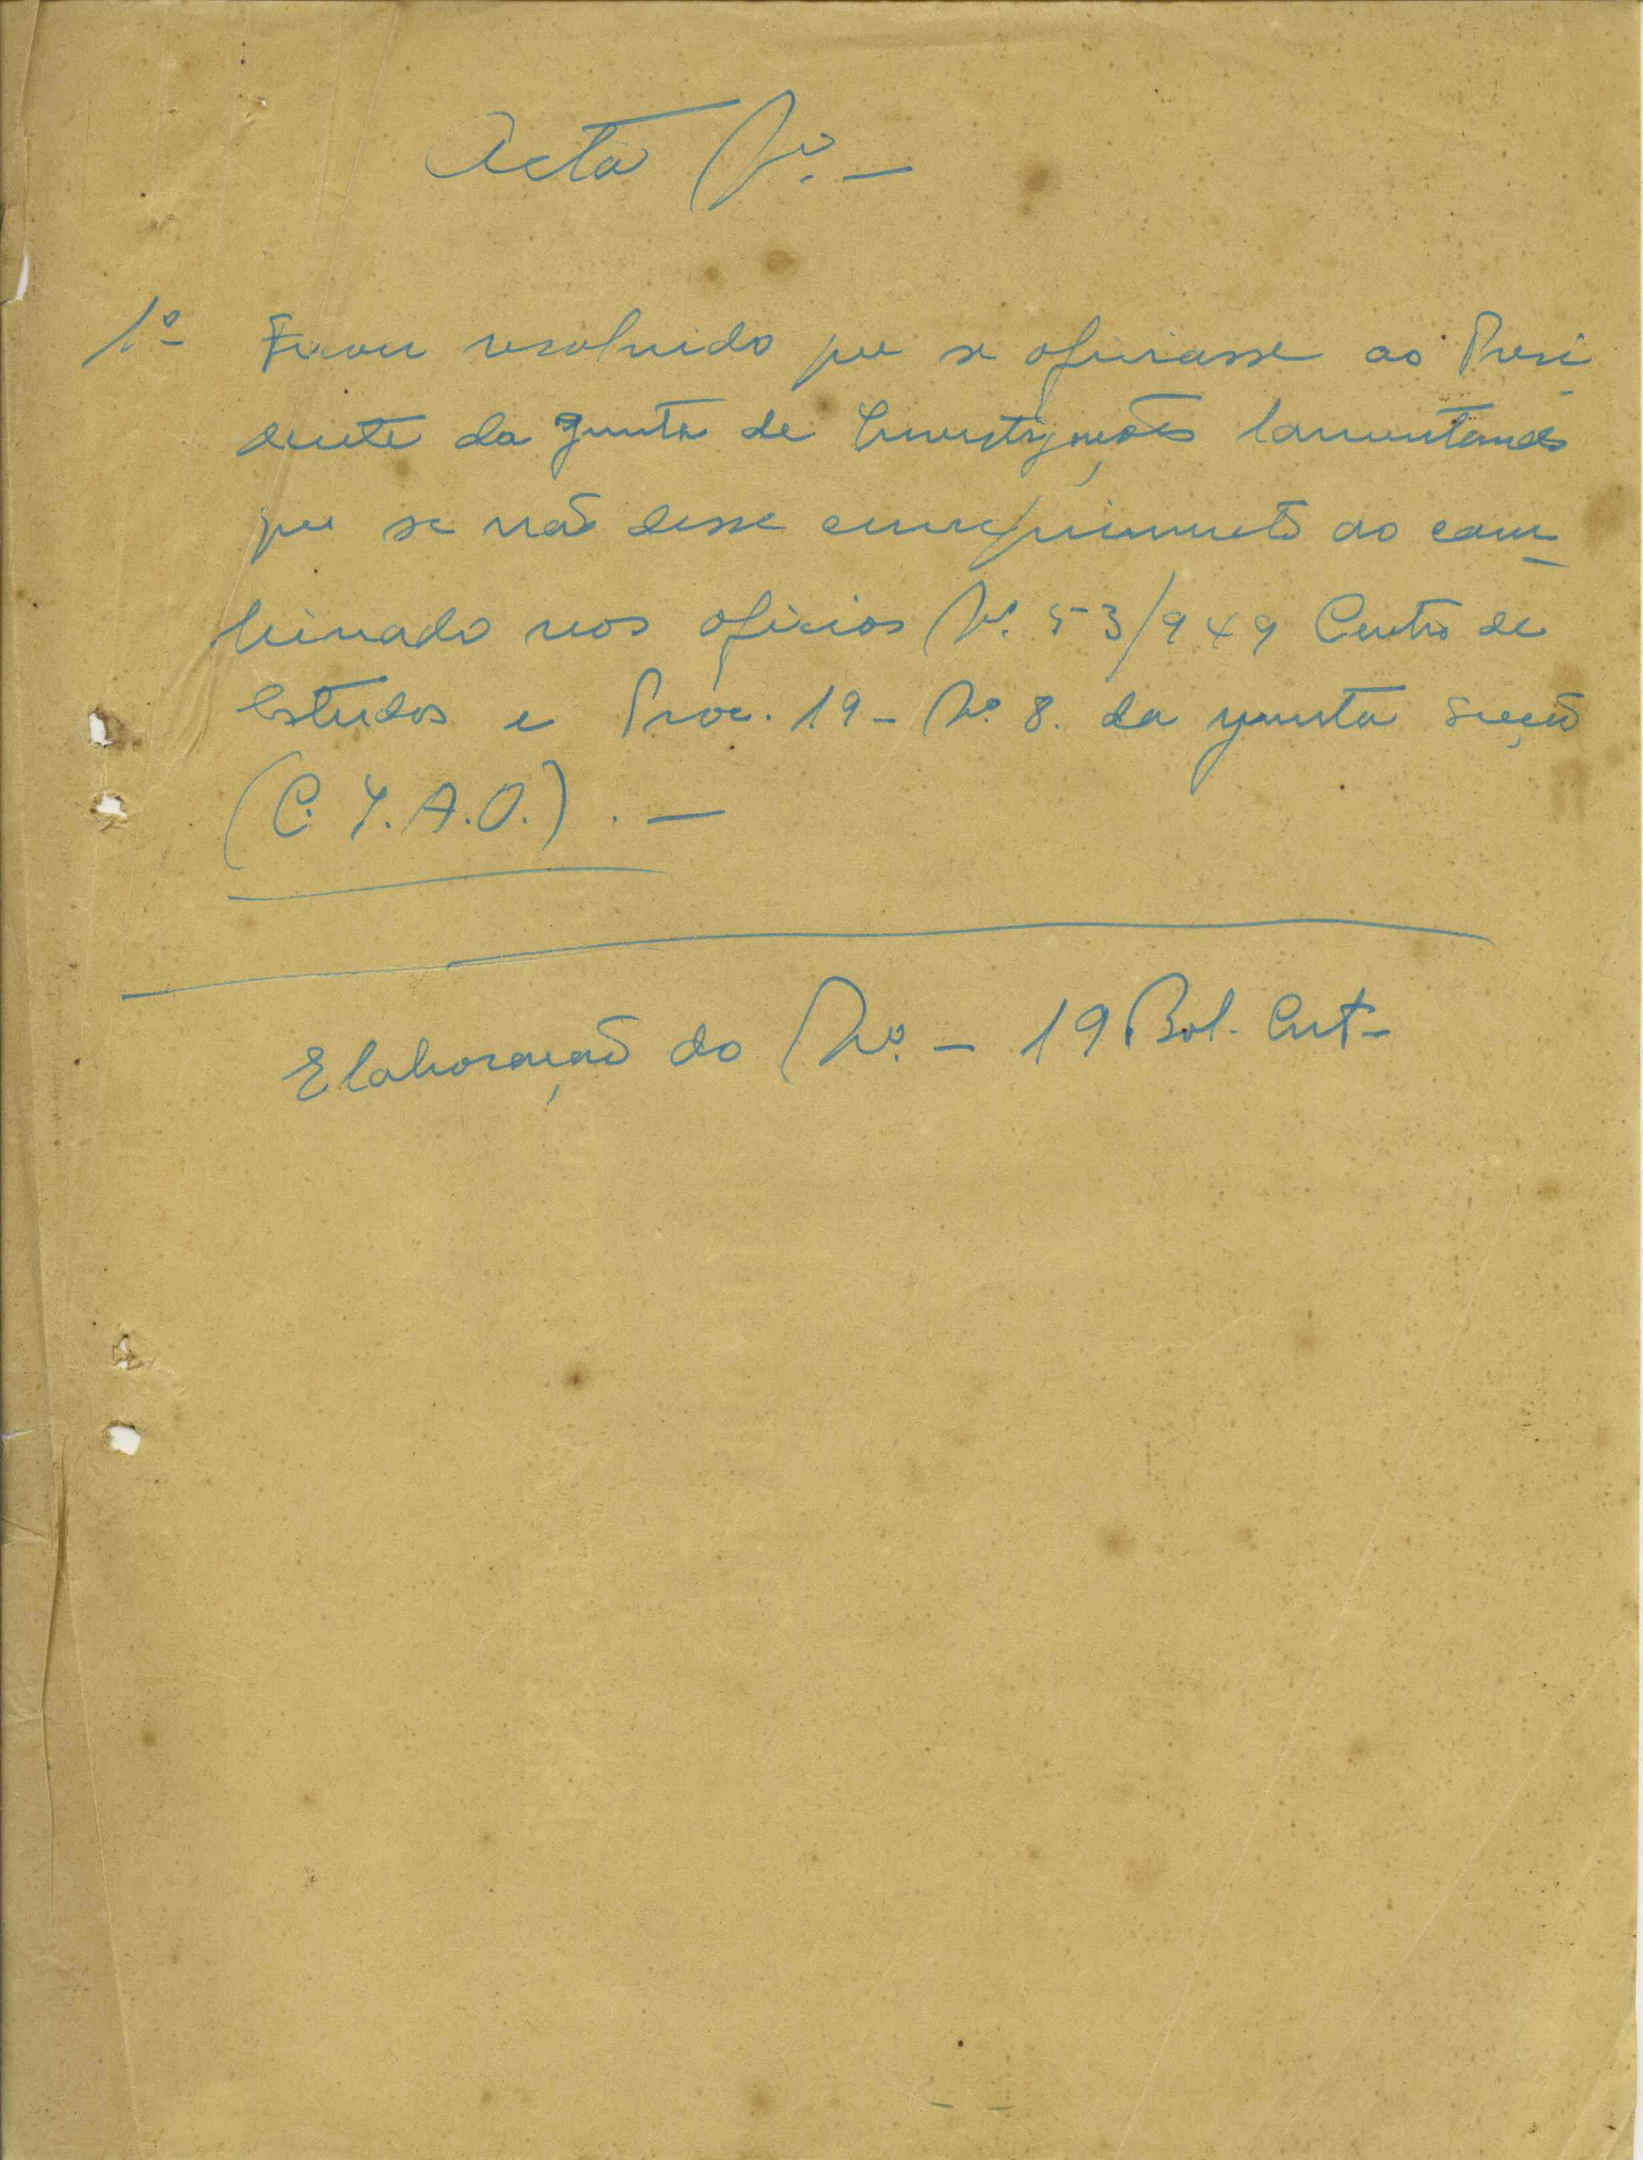 Acta Nº. —
1º Ficou resolvido que se oficiasse ao Presi-
dente da Junta de Investigações lamentando
que se não desse cumprimento ao com-
binado nos ofícios Nº. 53/949 Centro de
Estudos e Proc. 19 - Nº 8. da quarta Secção
(C. Y. A. O.) . —
Elaboração do Nº. — 19 Bol. Cult-